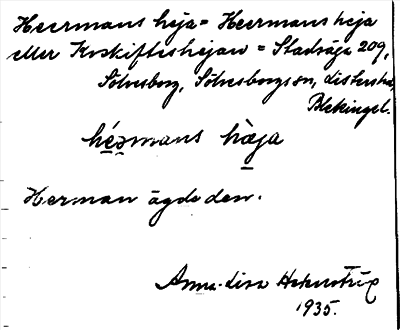 Heermans heja = Heermans heja
eller Kvskifteshejan = Stadsäga 209,
Sölvesborg, Sölvesborgs sn, Listers hd,
Blekinge l.
hérmans hàja
Herman ägde den.
Anna-Lisa
1935.